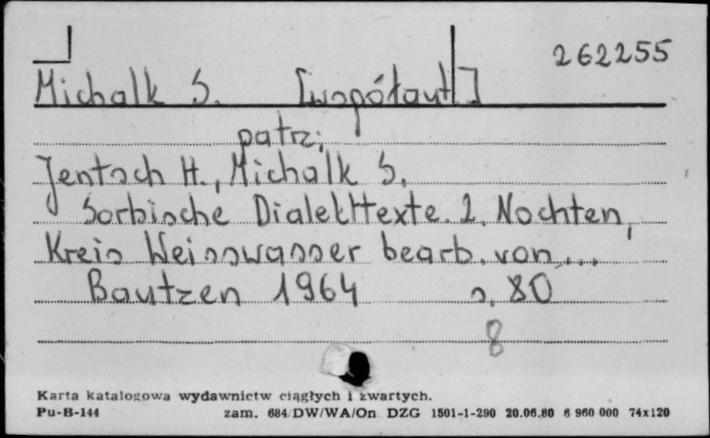 262255
Michalk S. [współaut]
patrz:
Jentsch H., Michalk S.
Sorbische Dialekttexte. 2. Nochten,
Kreis Weisswasser bearb. von ...
Bautzen 1964 s. 80
8
Karta katalogowa wydawnictw ciągłych i zwartych.
Pu-B-144 zam. 684/DW/WA/On DZG 1501-1-290 20.06.80 6 960 000 74x120